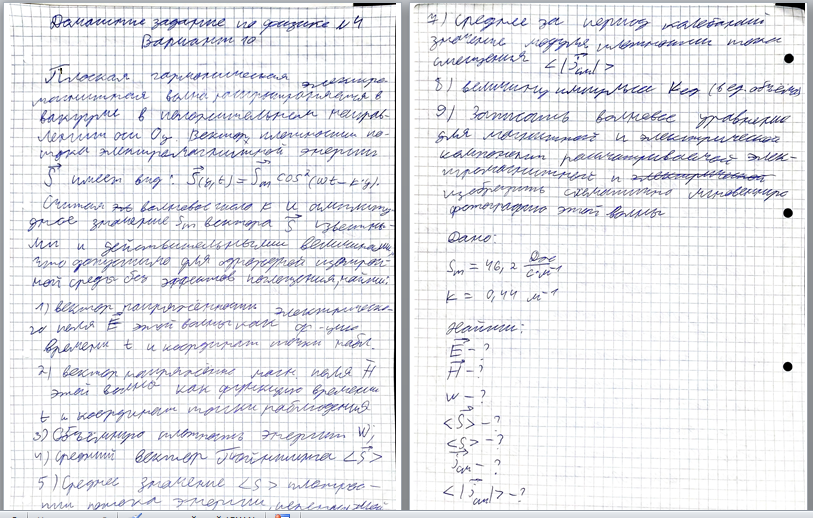 Домашнее задание по физике №4
Вариант 10
Плоская гармоническая электро-
магнитная волна распространяется в
вакууме в положительном направ-
лении оси Oy. Вектор плотности по-
тока электромагнитной энергии
S имеет вид: S(y,t) = Sm cos²(wt - k'y).
Считая волновое число K и амплитуд-
ное значение Sm вектора S известны-
ми и действительными величинами,
что допустимо для однородной изотроп-
ной среды без эффектов поглощения, найти:
1) вектор напряжённости электрическо-
го поля E этой волны как ф-цию
времени t и координат точки набл.
2) вектор напряжение магн. поля H
этой волны как функцию времени
t и координат точки наблюдения
3) Объёмную плотность энергии W;
4) Средний вектор Пойнтинга <S>
5) Среднее значение <S> плотнос-
ти потока энергии,
7) Среднее за период колебаний
значение модуля плотности тока
смещения <|jсм|>
8) величину импульса Kед (в ед. объёма)
9) Записать волновое уравнение
для магнитной и электрической
компонент рассматриваемой элек-
тромагнитный и электрической
изобразить схематично мгновенную
фотографию этой волны
Дано:
Sm = 46,2 Дж/с·м⁻¹
K = 0,44 м⁻¹
Найти:
E - ?
H - ?
w - ?
<S> - ?
<S> - ?
jсм - ?
<|jсм|> - ?